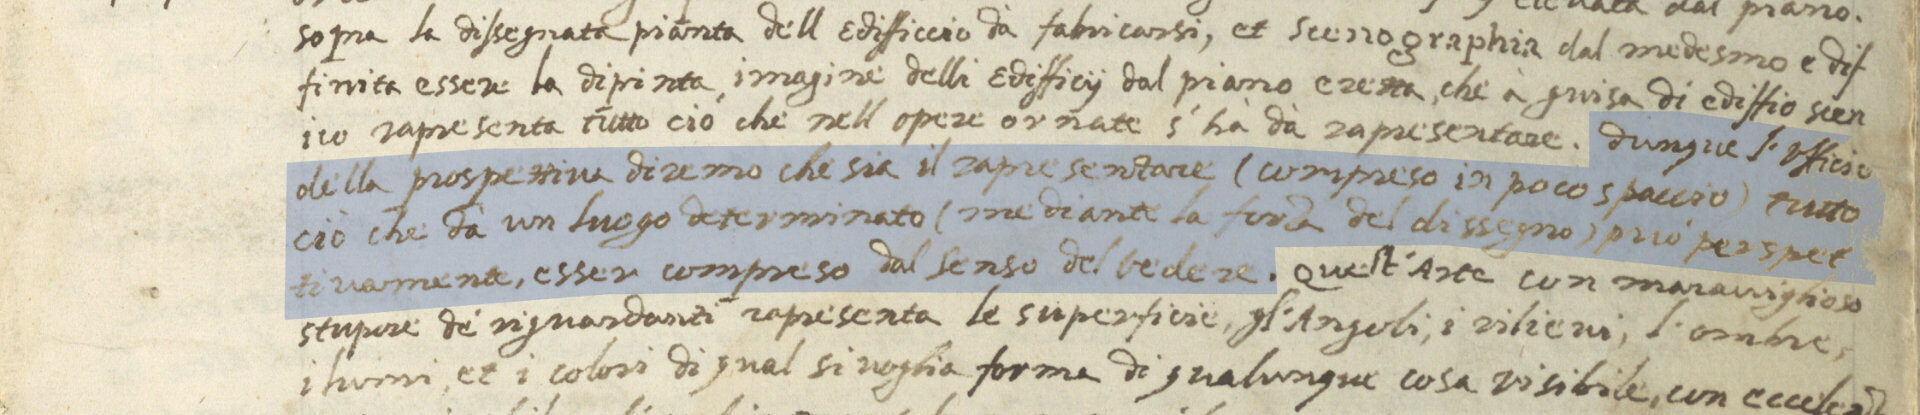 elevata dal piano.
sopra la dissegnata pianta dell Edifficcio da fabricarsi, et scenographia dal medesmo e dif
finita essere la dipinta imagine delli Edifficij dal piano eretta, che à guisa di ediffio scen
ico rapresenta tutto ciò che nell opere ornate s'hà dà rapresentare. Dunque l'officio
della prospettiva diremo che sia il rapresentare (compreso in poco spaccio) tutto
ciò che dà un luogo determinato (mediante la forza del dissegno) può perspet
tivamente, esser compreso dal senso del vedere. Quest'Arte con maraviglioso
stupore de' riguardanti rapresenta le superficie, gl'Angoli, i rilievi, l'ombre,
i lumi, et i colori di qual si voglia forma di qualunque cosa visibile, con